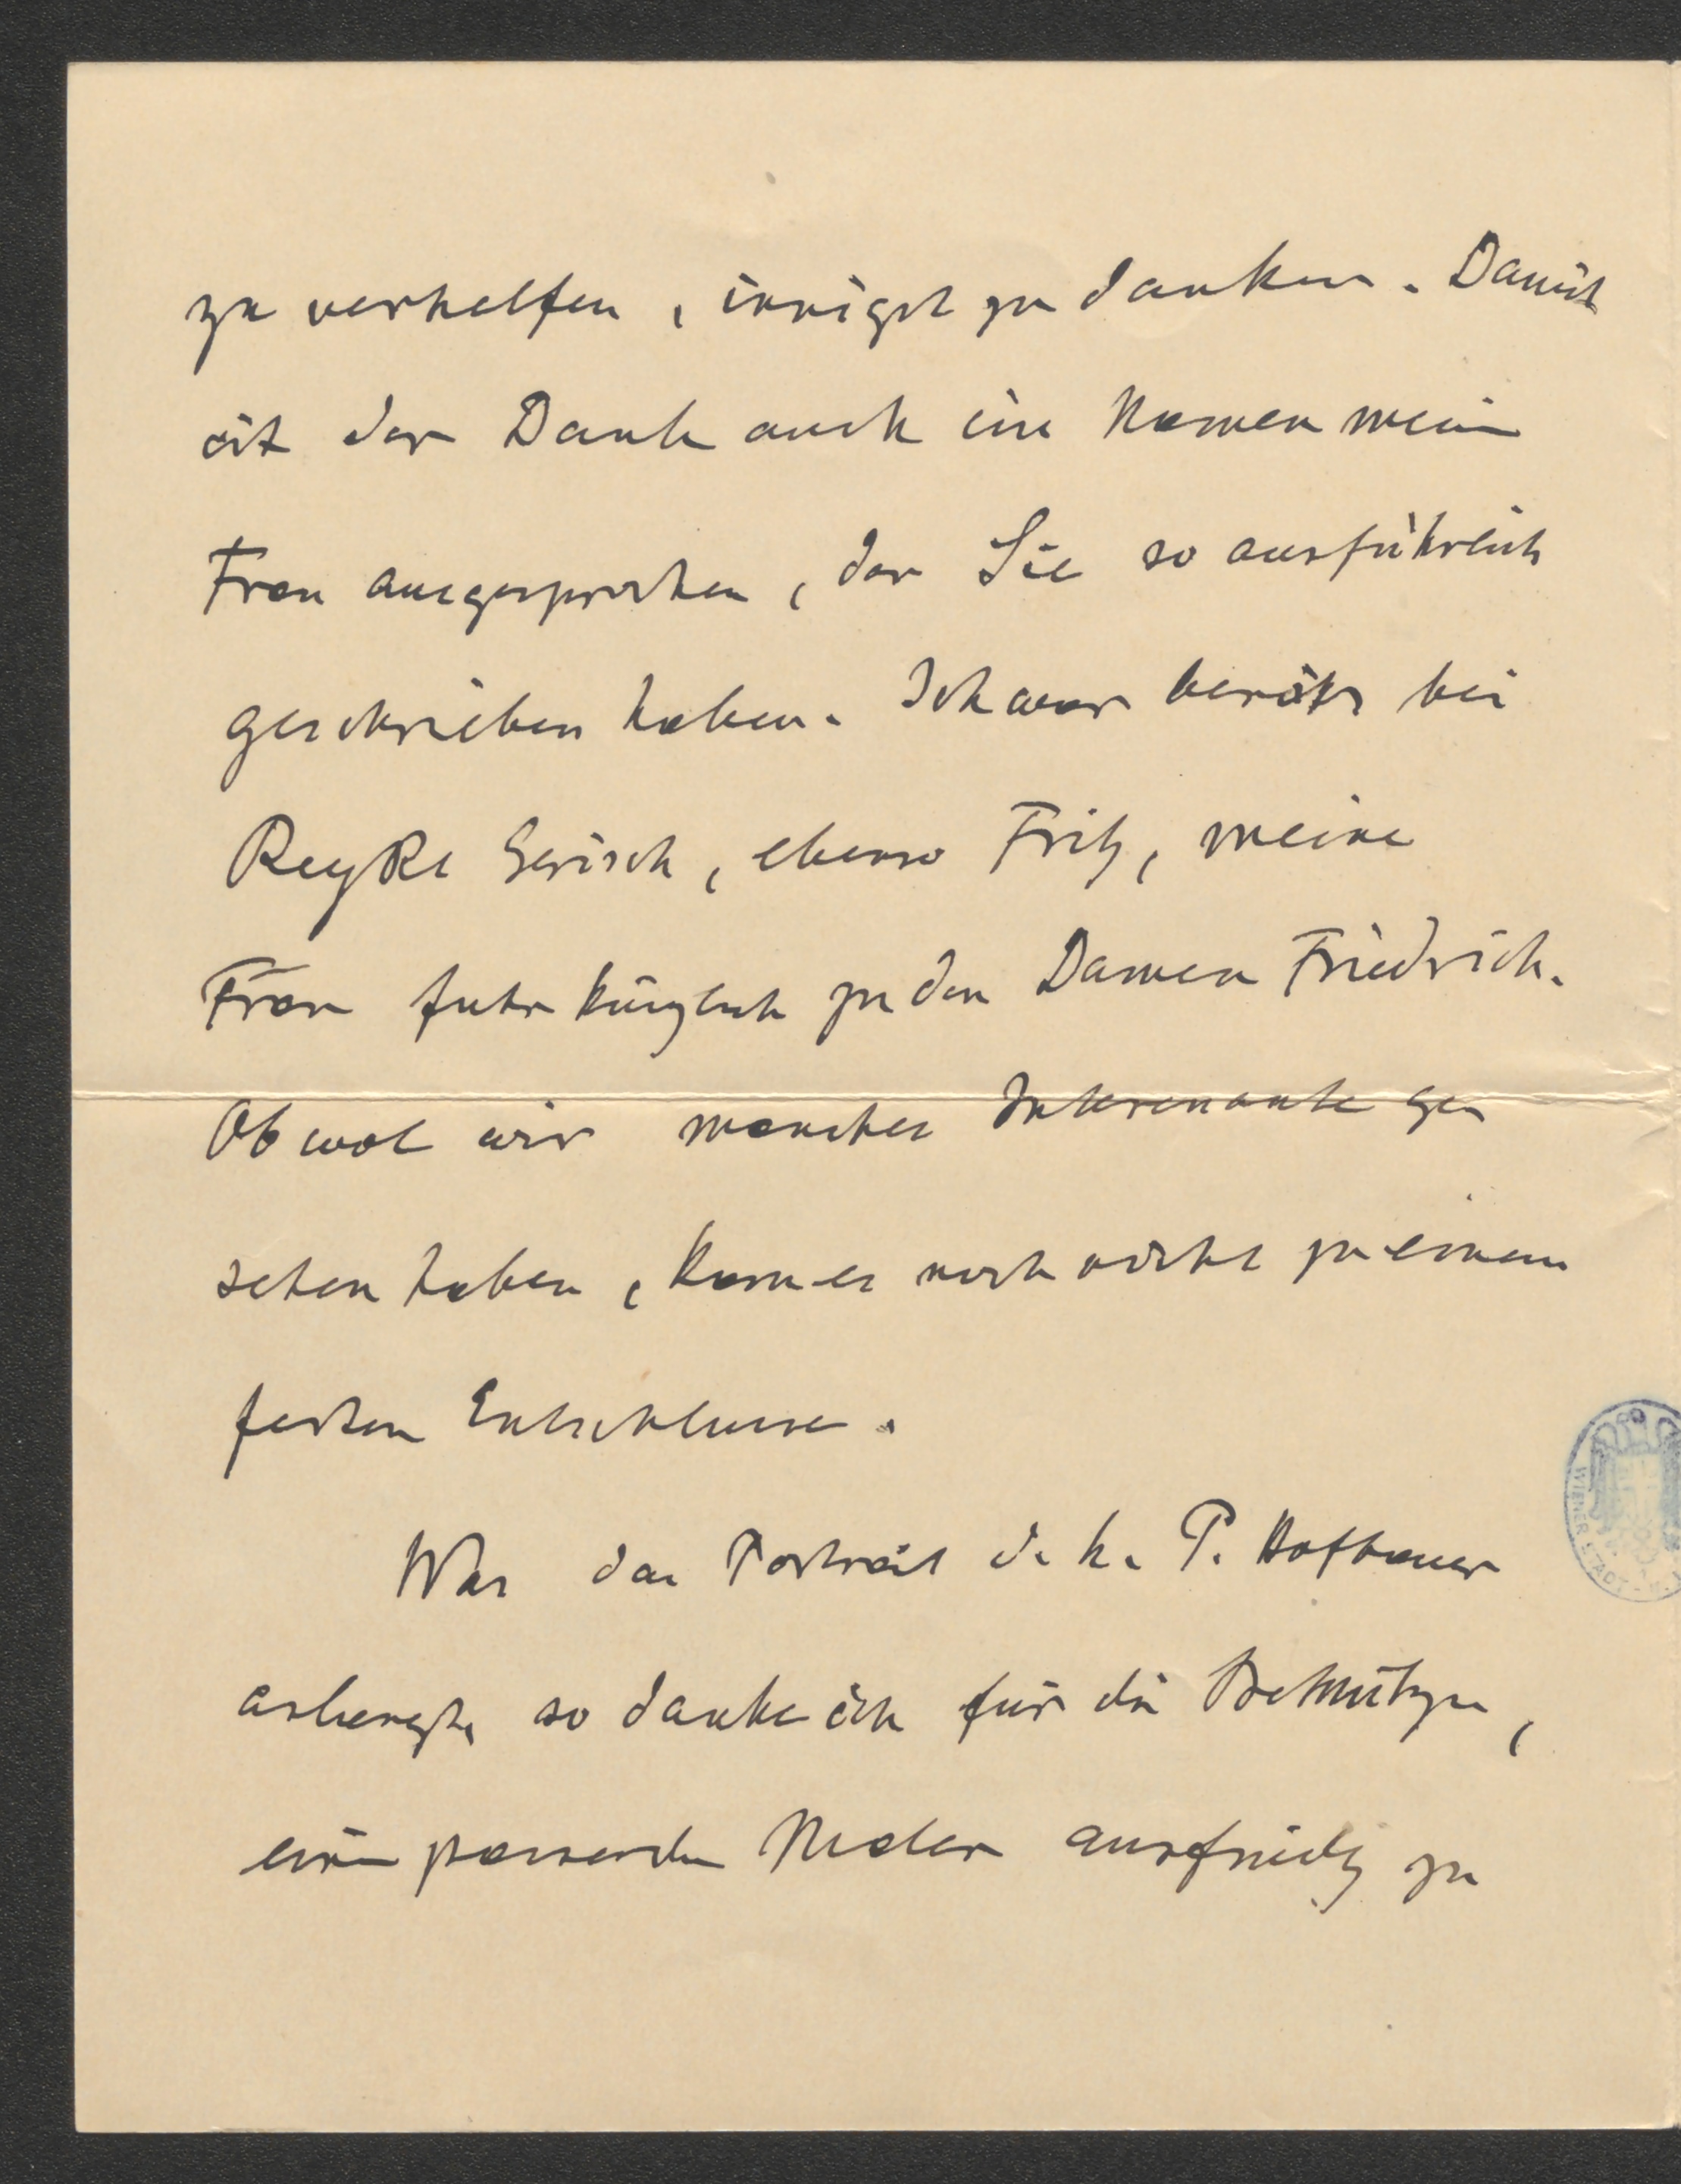 zu verhelfen, innigst zu danken. Damit
ist der Dank auch im Namen meiner
Frau ausgesprochen, der Sie so ausführlich
geschrieben haben. Ich war bereits bei
Gerisch, ebenso Fritz, meine
Frau fuhr kürzlich zu den Damen Friedrich.
Obwol wir manches Interessante ge
sehen haben, kam es noch nicht zu einem
festen Entschlusse.
Was das Porträt d. h. P. Hofbauer
anbelangt, so danke ich für die Bemühungen,
einen passenden Maler ausfindig zu
WIENER STADT-